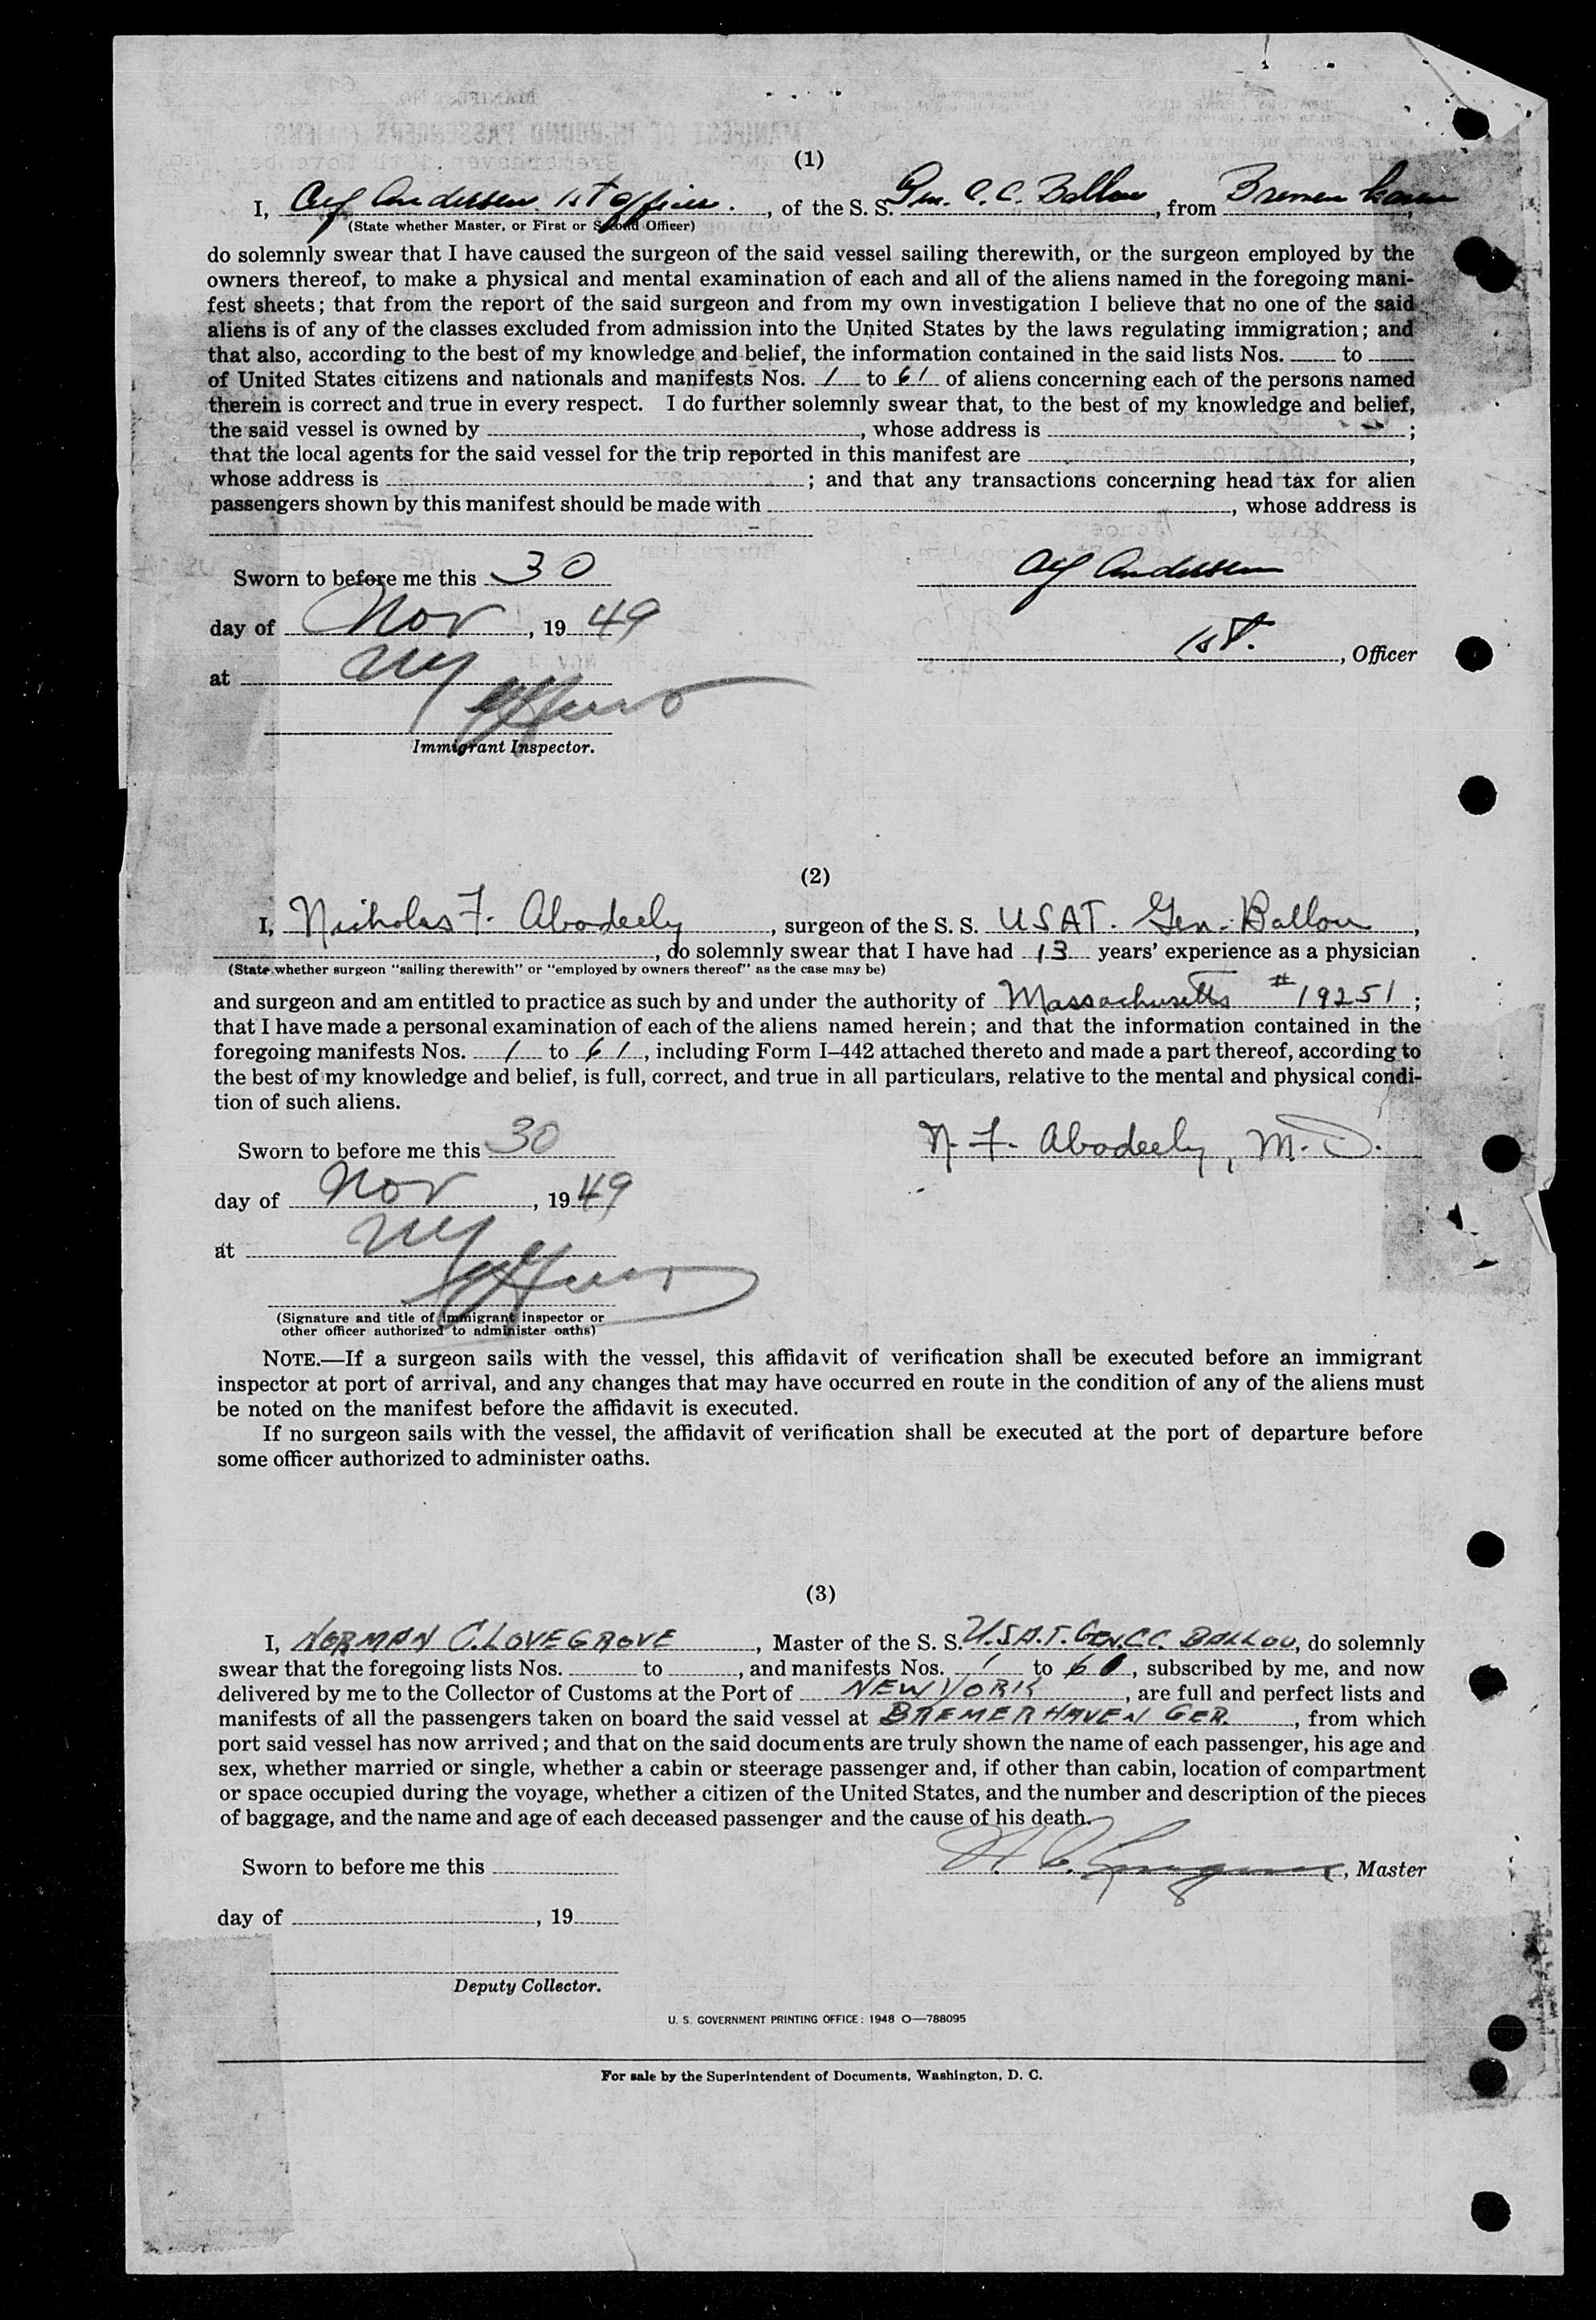 (1)
I, Alf Andersen 1st officer., of the S. S. Gen. C. C. Ballou, from Bremen haven,
(State whether Master, or First or Second Officer)
do solemnly swear that I have caused the surgeon of the said vessel sailing therewith, or the surgeon employed by the
owners thereof, to make a physical and mental examination of each and all of the aliens named in the foregoing mani-
fest sheets; that from the report of the said surgeon and from my own investigation I believe that no one of the said
aliens is of any of the classes excluded from admission into the United States by the laws regulating immigration; and
that also, according to the best of my knowledge and belief, the information contained in the said lists Nos. to
of United States citizens and nationals and manifests Nos. 1 to 61 of aliens concerning each of the persons named
therein is correct and true in every respect. I do further solemnly swear that, to the best of my knowledge and belief,
the said vessel is owned by , whose address is ;
that the local agents for the said vessel for the trip reported in this manifest are ,
whose address is ; and that any transactions concerning head tax for alien
passengers shown by this manifest should be made with , whose address is
Sworn to before me this 30
Alf Andersen
day of Nov, 19 49
1st., Officer
at NY
Immigrant Inspector.
(2)
I, Nicholas F. Abodeely, surgeon of the S. S. USAT. Gen. Ballou,
, do solemnly swear that I have had 13 years' experience as a physician
(State whether surgeon "sailing therewith" or "employed by owners thereof" as the case may be)
and surgeon and am entitled to practice as such by and under the authority of Massachusetts #19251;
that I have made a personal examination of each of the aliens named herein; and that the information contained in the
foregoing manifests Nos. 1 to 61, including Form I–442 attached thereto and made a part thereof, according to
the best of my knowledge and belief, is full, correct, and true in all particulars, relative to the mental and physical condi-
tion of such aliens.
Sworn to before me this 30
N. F. Abodeely, M. D.
day of Nov, 19 49
at NY
(Signature and title of immigrant inspector or
other officer authorized to administer oaths)
NOTE.—If a surgeon sails with the vessel, this affidavit of verification shall be executed before an immigrant
inspector at port of arrival, and any changes that may have occurred en route in the condition of any of the aliens must
be noted on the manifest before the affidavit is executed.
If no surgeon sails with the vessel, the affidavit of verification shall be executed at the port of departure before
some officer authorized to administer oaths.
(3)
I, NORMAN C. LOVEGROVE, Master of the S. S. U.S.A.T. GEN. C.C. BALLOU, do solemnly
swear that the foregoing lists Nos. to , and manifests Nos. 1 to 6, subscribed by me, and now
delivered by me to the Collector of Customs at the Port of NEW YORK, are full and perfect lists and
manifests of all the passengers taken on board the said vessel at BREMERHAVEN GER., from which
port said vessel has now arrived; and that on the said documents are truly shown the name of each passenger, his age and
sex, whether married or single, whether a cabin or steerage passenger and, if other than cabin, location of compartment
or space occupied during the voyage, whether a citizen of the United States, and the number and description of the pieces
of baggage, and the name and age of each deceased passenger and the cause of his death.
Sworn to before me this
N. C. Lovegrove, Master
day of , 19
Deputy Collector.
U. S. GOVERNMENT PRINTING OFFICE: 1948 O—788095
For sale by the Superintendent of Documents, Washington, D. C.